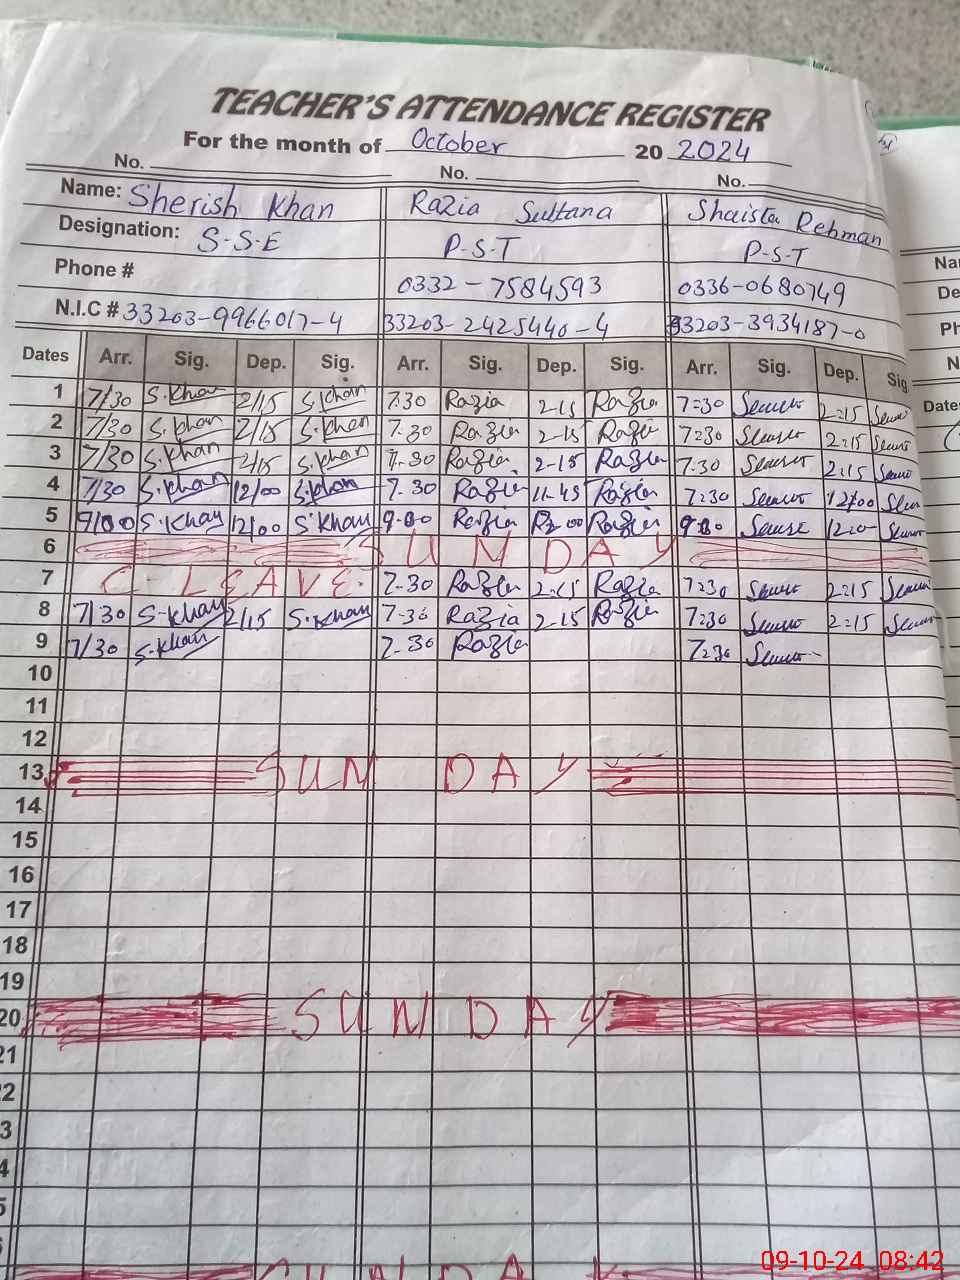 TEACHER'S ATTENDANCE REGISTER
For the month of October 20 2024
No. No. No.
Name: Sherish Khan Razia Sultana Shaista Rehman
Designation: S-S-E P-S-T P-S-T
Phone # 0332-7584593 0336-0680749
N.I.C # 33203-9966017-4 33203-2425440-4 33203-3934187-0
Dates Arr. Sig. Dep. Sig. Arr. Sig. Dep. Sig. Arr. Sig. Dep. Sig
1 7/30 S.Khan 2/15 S.Khan 7.30 Razia 2-15 Razia 7=30 2=15
2 7/30 S.Khan 2/15 S.Khan 7.30 Razia 2-15 Razia 7=30 2=15
3 7/30 S.Khan 2/15 S.Khan 7.30 Razia 2-15 Razia 7.30 2=15
4 7/30 S.Khan 12/00 S.Khan 7.30 Razia 11-45 Razia 7=30 12/00
5 9/00 S.Khan 12/00 S.Khan 9.00 Razia 12.00 Razia 12.0
6 SUNDAY
7 C- LEAVE. 7-30 Razia 2-15 Razia 7=30 2=15
8 7/30 S-Khan 2/15 S.Khan 7-30 Razia 2-15 Razia 7=30 2=15
9 7/30 S.Khan 7-30 Razia 7=30
10
11
12
13 SUNDAY
14
15
16
17
18
19
20 SUNDAY
21
2
3
4
5
SUNDAY
Na
De
Ph
N
Dates
09-10-24 08:42